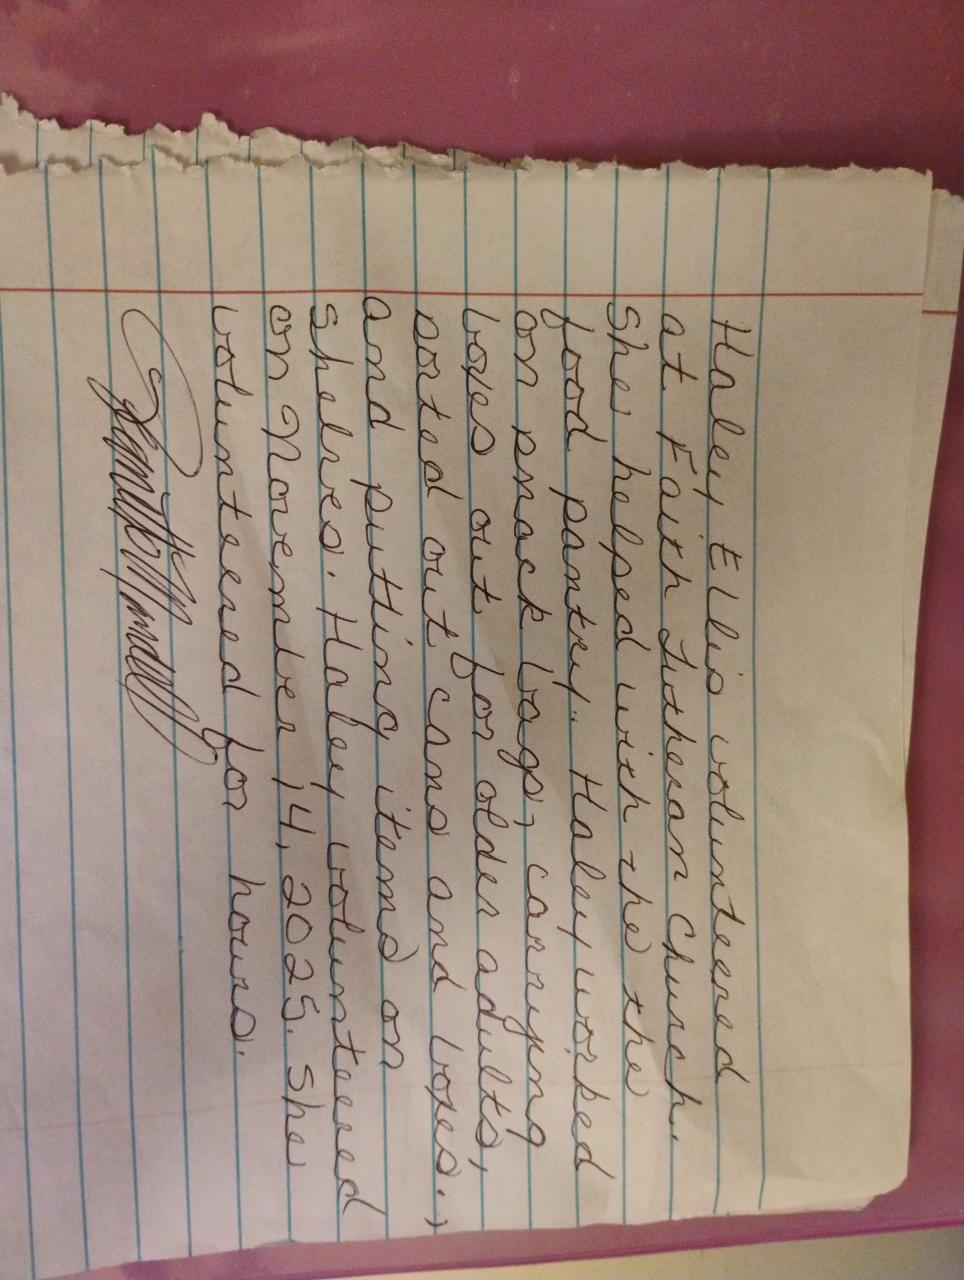 Haley Ellis volunteered
at Faith Lutheran Church.
She helped with the the
food pantry. Haley worked
on snack bags, carrying
boxes out for older adults,
sorted out cans and boxes.,
and putting items on
shelves. Haley volunteered
on November 14, 2025. She
volunteered for hours.